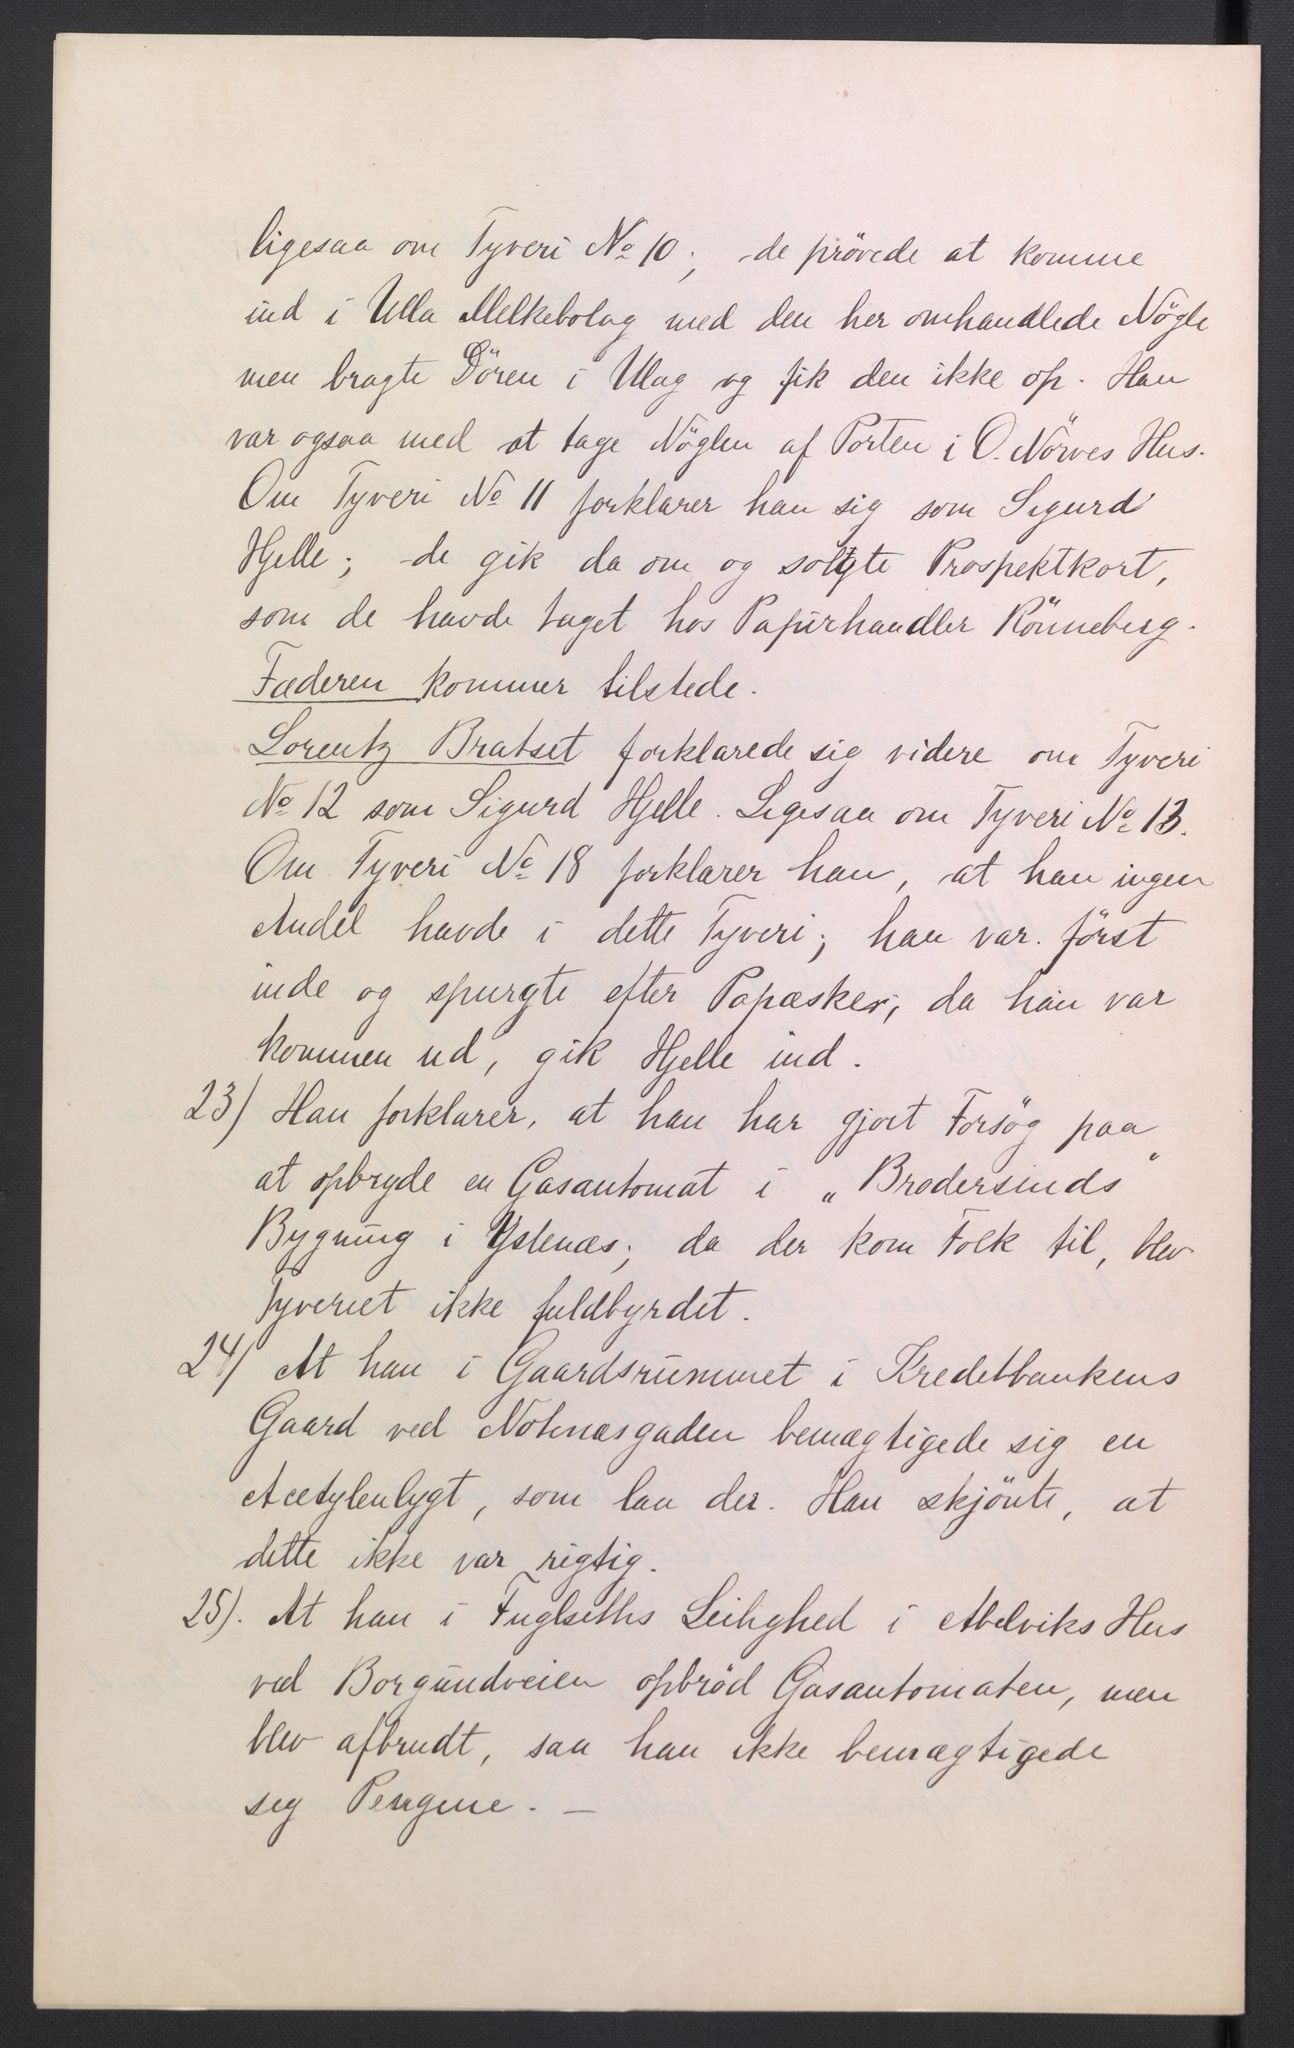 ligesaa om Tyveri No 10; de prövede at komme
ind i Ulla Melkebolag med den her omhandlede Nögle
men bragte Dören i Ulag og fik den ikke op. Han
var ogsaa med at tage Nöglen af Porten i O. Nörves Hus.
Om Tyveri No 11 forklarer han sig som Sigurd
Hjelle; de gik da om og solgte Prospektkort,
som de havde taget hos Papirhandler Rönneberg.
Faderen kommer tilstede.
Lorentz Bratset forklarede sig videre om Tyveri
No 12 som Sigurd Hjelle. Ligesaa om Tyveri No 13.
Om Tyveri No 18 forklarer han, at han ingen
Andel havde i dette Tyveri; han var först
inde og spurgte efter Papæsker; da han var
kommen ud, gik Hjelle ind.
23) Han forklarer, at han har gjort Forsög paa
at opbryde en Gasautomat i „Brodersunds"
Bygning i Yslenæs; da der kom Folk til, blev
Tyveriet ikke fuldbyrdet.
24) At han i Gaardsrummet i Kreditbankens
Gaard ved Notenæsgaden bemægtigede sig en
Acetylenlygt, som laa der. Han skjönte, at
dette ikke var rigtig.
25). At han i Fuglseths Leilighed i Abelviks Hus
ved Borgundveien opbröd Gasautomaten, men
blev afbrudt, saa han ikke bemægtigede
sig Pengene. —